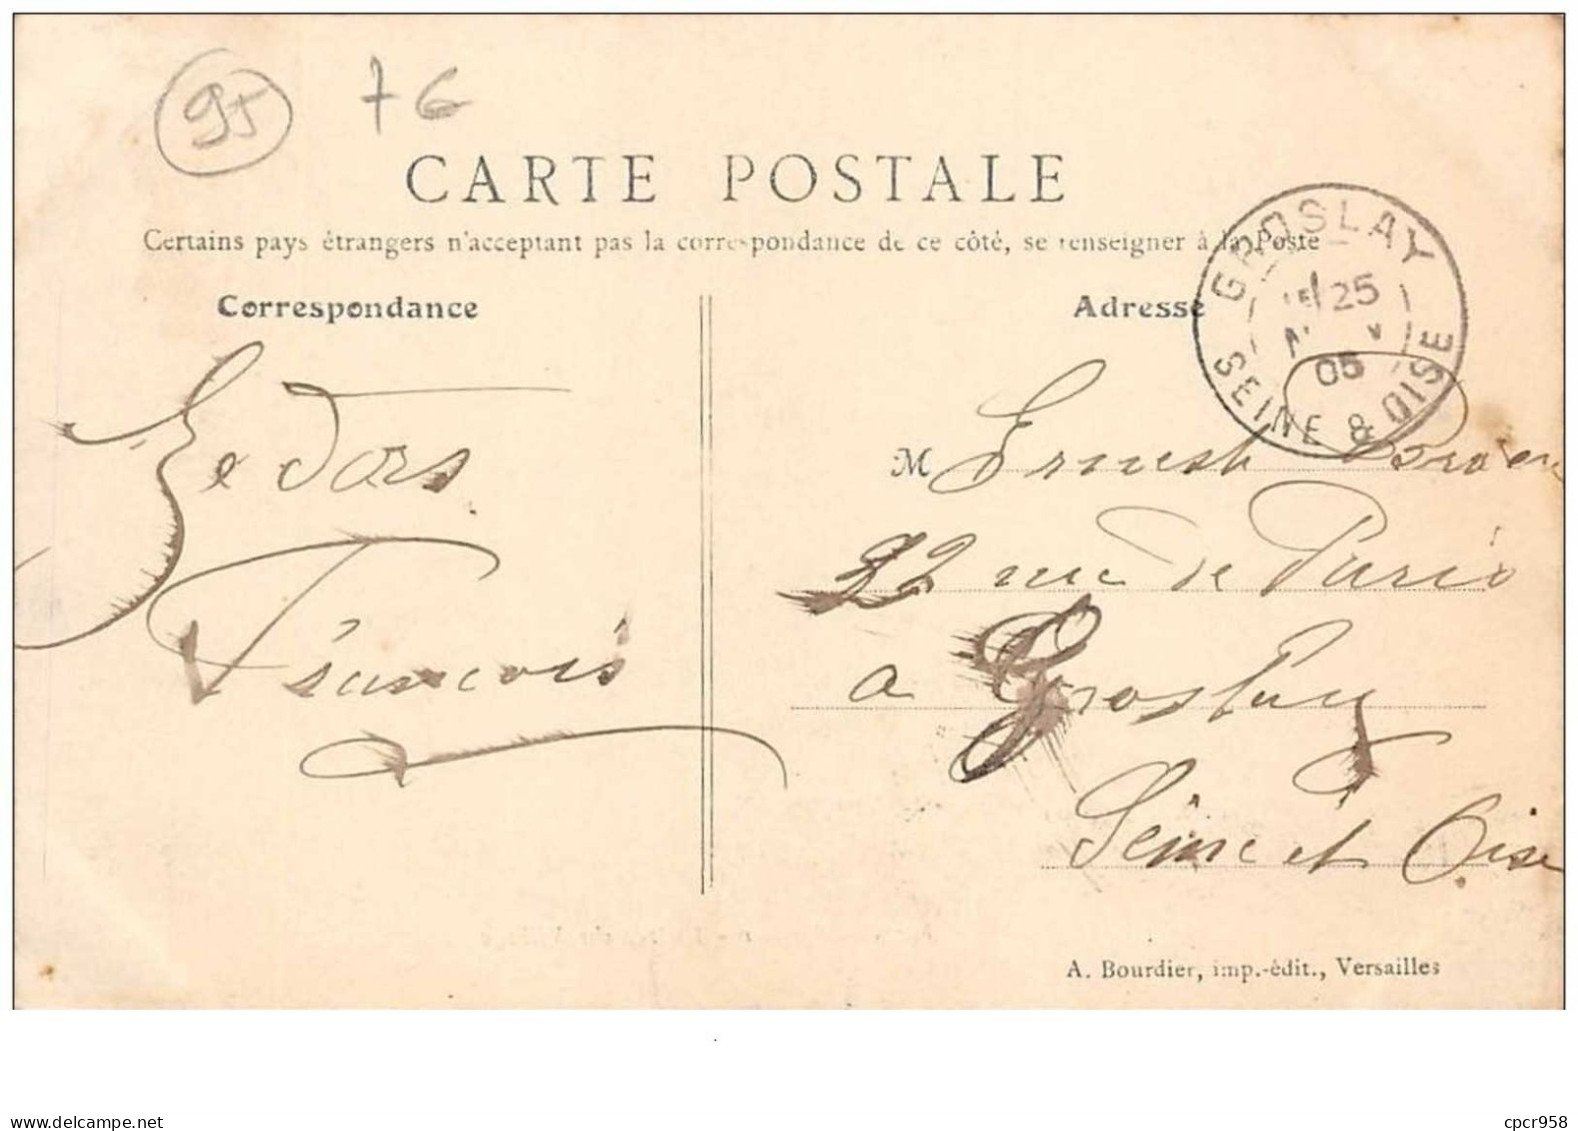 95 7 G
CARTE POSTALE
Certains pays étrangers n'acceptant pas la correspondance de ce côté, se renseigner à la Poste
Correspondance
Adresse
GROSLAY
25
05
SEINE & OISE
M Ernest
22 rue de Paris
a Groslay
Seine et Oise
François
A. Bourdier, imp.-édit., Versailles
www.delcampe.net
cpcr958